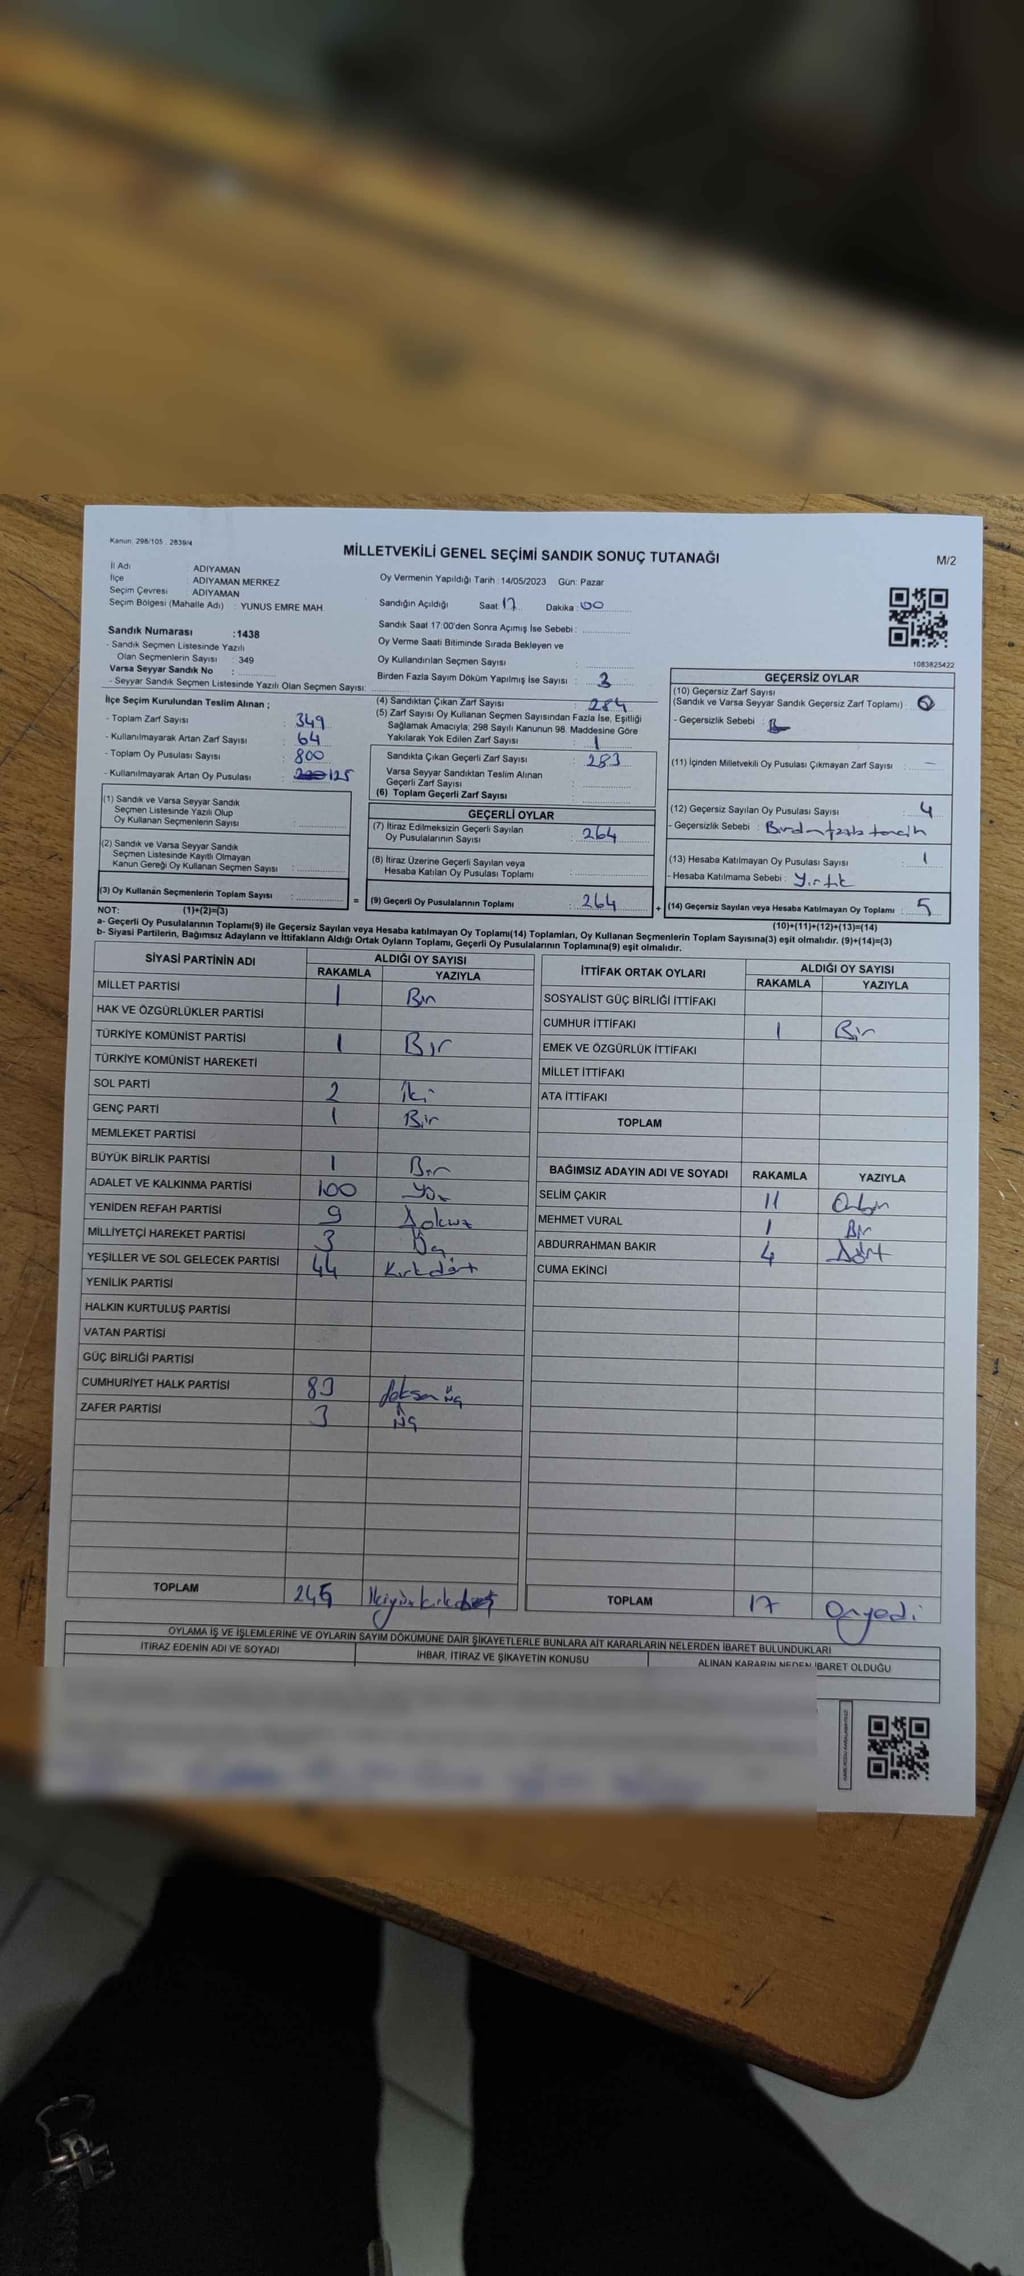 Kanun: 298/105 - 2839/4
MİLLETVEKİLİ GENEL SEÇİMİ SANDIK SONUÇ TUTANAĞI
M/2
İl Adı ADIYAMAN
İlçe : ADIYAMAN MERKEZ
Seçim Çevresi : ADIYAMAN
Seçim Bölgesi (Mahalle Adı) : YUNUS EMRE MAH.
Sandık Numarası :1438
- Sandık Seçmen Listesinde Yazılı
Olan Seçmenlerin Sayısı : 349
Varsa Seyyar Sandık No :
- Seyyar Sandık Seçmen Listesinde Yazılı Olan Seçmen Sayısı:
Oy Vermenin Yapıldığı Tarih : 14/05/2023 Gün: Pazar
Sandığın Açıldığı Saat: 17 Dakika : 00
Sandık Saat 17:00'den Sonra Açımış İse Sebebi :
Oy Verme Saati Bitiminde Sırada Bekleyen ve
Oy Kullandırılan Seçmen Sayısı :
Birden Fazla Sayım Döküm Yapılmış İse Sayısı : 3
1083825422
İlçe Seçim Kurulundan Teslim Alınan ;
- Toplam Zarf Sayısı : 349
- Kullanılmayarak Artan Zarf Sayısı : 64
- Toplam Oy Pusulası Sayısı : 800
- Kullanılmayarak Artan Oy Pusulası : 125
(1) Sandık ve Varsa Seyyar Sandık
Seçmen Listesinde Yazılı Olup
Oy Kullanan Seçmenlerin Sayısı :
(2) Sandık ve Varsa Seyyar Sandık
Seçmen Listesinde Kayıtlı Olmayan
Kanun Gereği Oy Kullanan Seçmen Sayısı :
(3) Oy Kullanan Seçmenlerin Toplam Sayısı : =
(1)+(2)=(3)
(4) Sandıktan Çıkan Zarf Sayısı : 284
(5) Zarf Sayısı Oy Kullanan Seçmen Sayısından Fazla İse, Eşitliği
Sağlamak Amacıyla; 298 Sayılı Kanunun 98. Maddesine Göre
Yakılarak Yok Edilen Zarf Sayısı : 1
Sandıkta Çıkan Geçerli Zarf Sayısı : 283
Varsa Seyyar Sandıktan Teslim Alınan
Geçerli Zarf Sayısı :
(6) Toplam Geçerli Zarf Sayısı :
GEÇERLİ OYLAR
(7) İtiraz Edilmeksizin Geçerli Sayılan
Oy Pusulalarının Sayısı : 264
(8) İtiraz Üzerine Geçerli Sayılan veya
Hesaba Katılan Oy Pusulası Toplamı :
(9) Geçerli Oy Pusulalarının Toplamı : 264 +
GEÇERSİZ OYLAR
(10) Geçersiz Zarf Sayısı
(Sandık ve Varsa Seyyar Sandık Geçersiz Zarf Toplamı) : 0
- Geçersizlik Sebebi :
(11) İçinden Milletvekili Oy Pusulası Çıkmayan Zarf Sayısı : -
(12) Geçersiz Sayılan Oy Pusulası Sayısı : 4
- Geçersizlik Sebebi : Birden fazla tercih
(13) Hesaba Katılmayan Oy Pusulası Sayısı : 1
- Hesaba Katılmama Sebebi : Yırtık
(14) Geçersiz Sayılan veya Hesaba Katılmayan Oy Toplamı : 5
(10)+(11)+(12)+(13)=(14)
NOT:
a- Geçerli Oy Pusulalarının Toplamı(9) ile Geçersiz Sayılan veya Hesaba katılmayan Oy Toplamı(14) Toplamları, Oy Kullanan Seçmenlerin Toplam Sayısına(3) eşit olmalıdır. (9)+(14)=(3)
b- Siyasi Partilerin, Bağımsız Adayların ve İttifakların Aldığı Ortak Oyların Toplamı, Geçerli Oy Pusulalarının Toplamına(9) eşit olmalıdır.
SİYASİ PARTİNİN ADI ALDIĞI OY SAYISI
RAKAMLA YAZIYLA
MİLLET PARTİSİ 1 Bir
HAK VE ÖZGÜRLÜKLER PARTİSİ
TÜRKİYE KOMÜNİST PARTİSİ 1 Bir
TÜRKİYE KOMÜNİST HAREKETİ
SOL PARTİ 2 İki
GENÇ PARTİ 1 Bir
MEMLEKET PARTİSİ
BÜYÜK BİRLİK PARTİSİ 1 Bir
ADALET VE KALKINMA PARTİSİ 100 Yüz
YENİDEN REFAH PARTİSİ 9 dokuz
MİLLİYETÇİ HAREKET PARTİSİ 3 Üç
YEŞİLLER VE SOL GELECEK PARTİSİ 44 Kırkdört
YENİLİK PARTİSİ
HALKIN KURTULUŞ PARTİSİ
VATAN PARTİSİ
GÜÇ BİRLİĞİ PARTİSİ
CUMHURİYET HALK PARTİSİ 83
ZAFER PARTİSİ 3 üç
TOPLAM 245 İkiyüzkırkbeş
İTTİFAK ORTAK OYLARI ALDIĞI OY SAYISI
RAKAMLA YAZIYLA
SOSYALİST GÜÇ BİRLİĞİ İTTİFAKI
CUMHUR İTTİFAKI 1 Bir
EMEK VE ÖZGÜRLÜK İTTİFAKI
MİLLET İTTİFAKI
ATA İTTİFAKI
TOPLAM
BAĞIMSIZ ADAYIN ADI VE SOYADI RAKAMLA YAZIYLA
SELİM ÇAKIR 11 Onbir
MEHMET VURAL 1 Bir
ABDURRAHMAN BAKIR 4 Dört
CUMA EKİNCİ
TOPLAM 17 Onyedi
OYLAMA İŞ VE İŞLEMLERİNE VE OYLARIN SAYIM DÖKÜMÜNE DAİR ŞİKAYETLERLE BUNLARA AİT KARARLARIN NELERDEN İBARET BULUNDUKLARI
İTİRAZ EDENİN ADI VE SOYADI İHBAR, İTİRAZ VE ŞİKAYETİN KONUSU ALINAN KARARIN NEDEN İBARET OLDUĞU